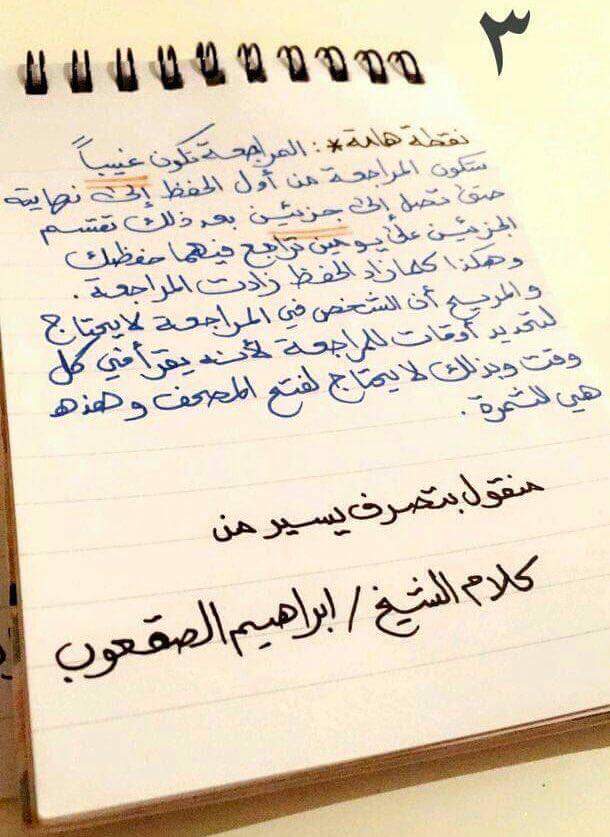 ٣
نقطة هامة* : المراجعة تكون غيباً
ستكون المراجعة من أول الحفظ إلى نهايته
حتى تصل إلى جزئين بعد ذلك تقسم
الجزئين على يومين تراجع فيهما حفظك
وهكذا كلما زاد الحفظ زادت المراجعة .
والمريح أن الشخص في المراجعة لا يحتاج
لتحديد أوقات للمراجعة لأنه يقرأ في كل
وقت وبذلك لا يحتاج لفتح المصحف وهذه
هي الثمرة .
منقول بتصرف يسير من
كلام الشيخ / ابراهيم الصقعوب